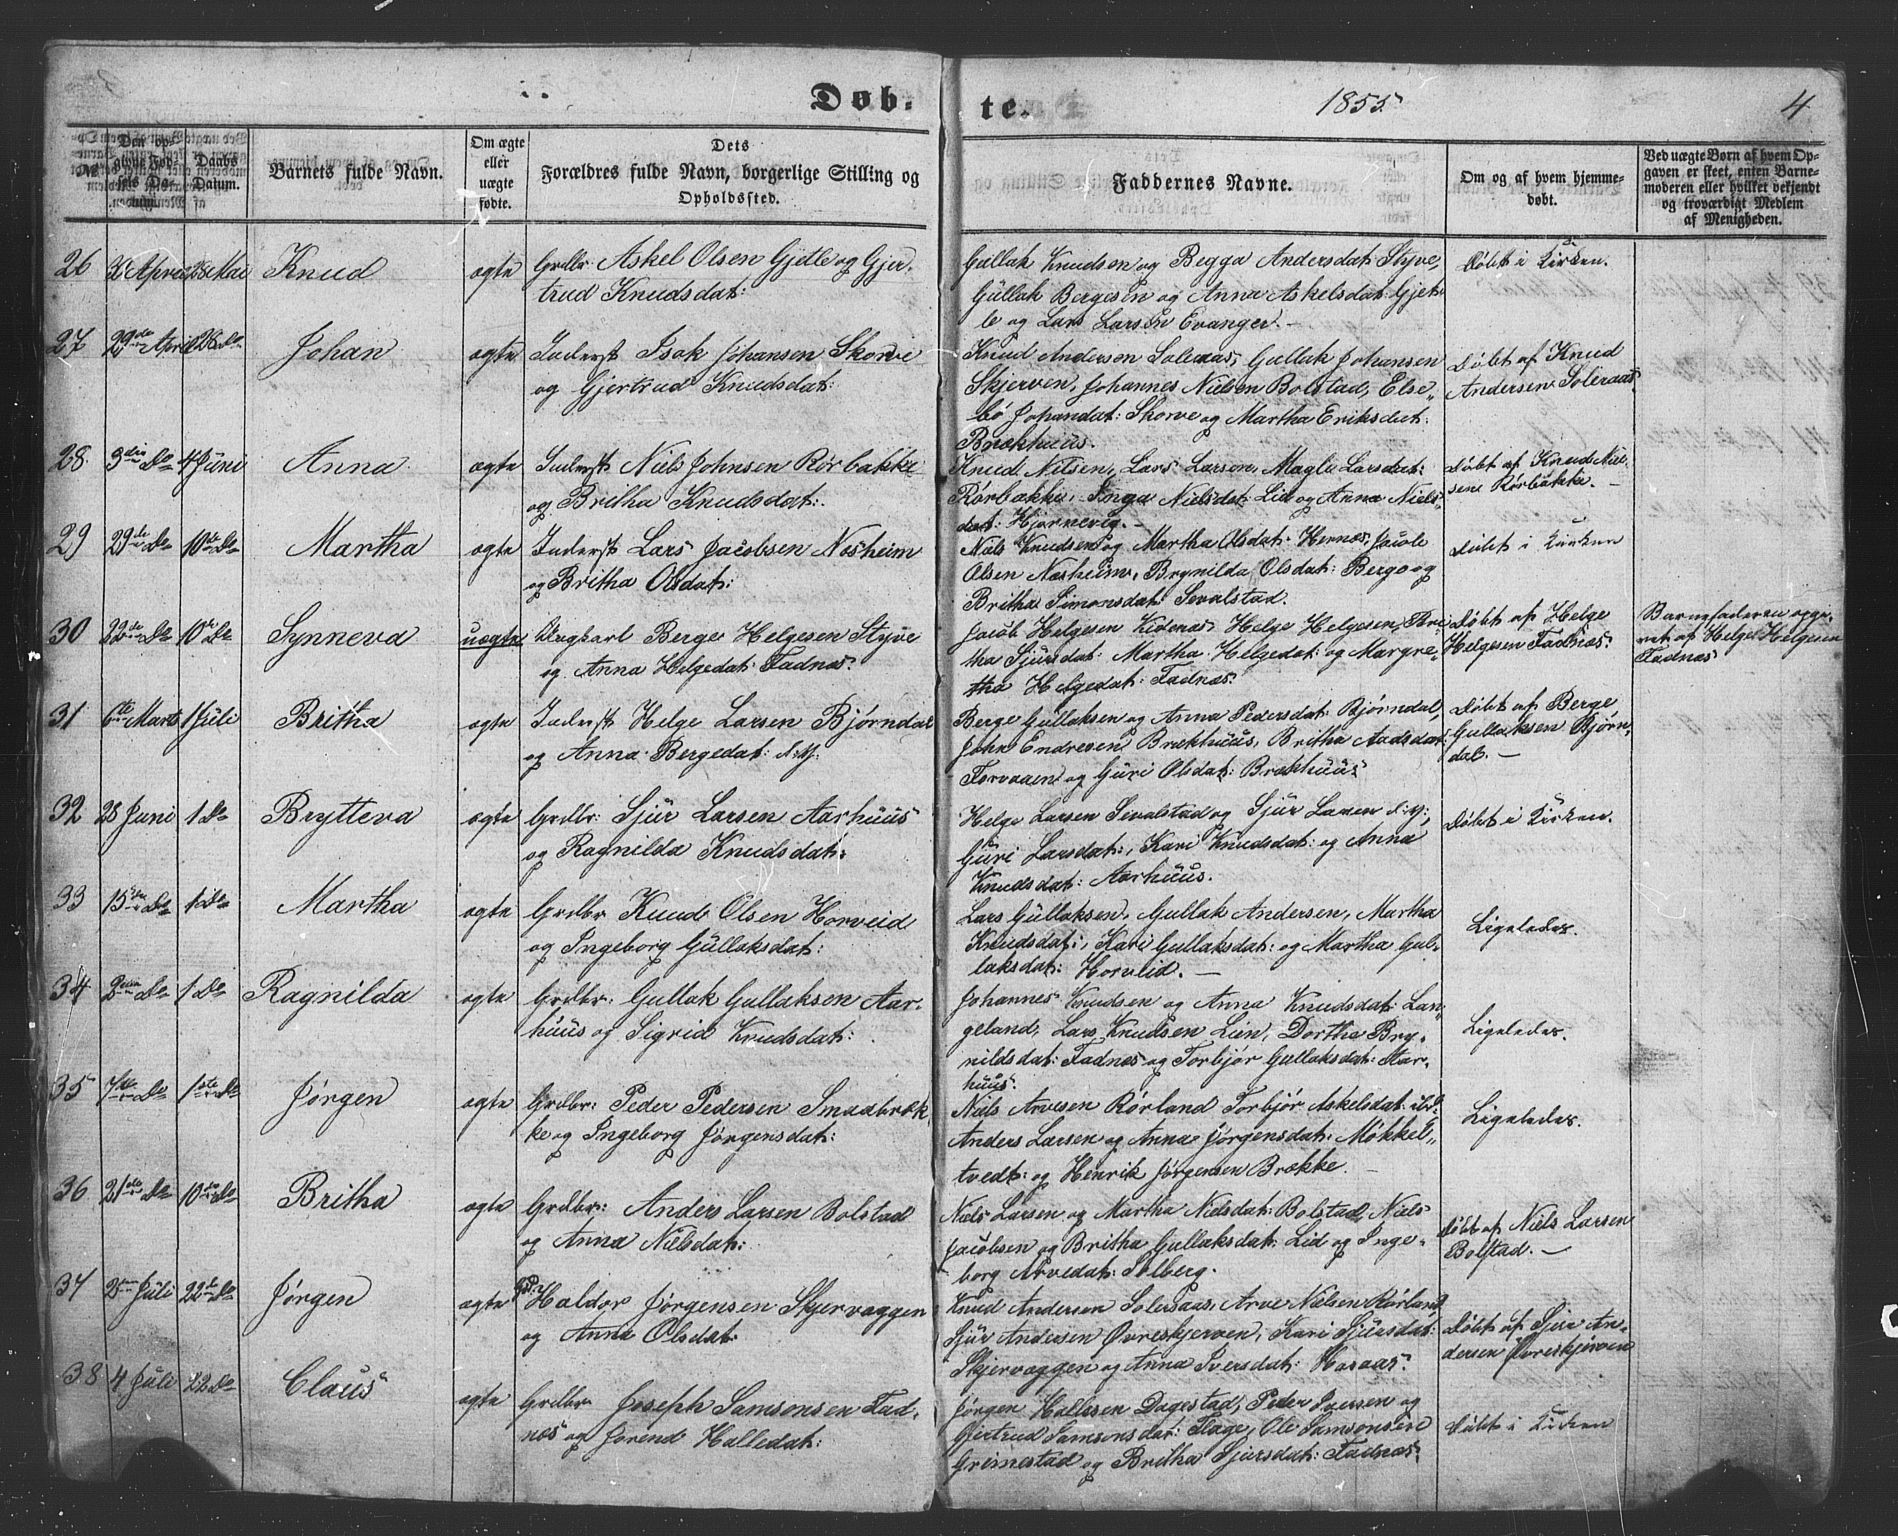 Døb. te. 1855 4
№ Den opgivne Fødsels Da- Daabs Datum. Barnets fulde Navn. Om ægte eller uægte fødte. Dets Forældres fulde Navn, borgerlige Stilling og Opholdssted. Faddernes Navne. Om og af hvem hjemmedøbt. Ved uægte Børn af hvem Opgaven er skeet, enten Barnemoderen eller hvilket bekjendt og troværdigt Medlem af Menigheden.
26 April 28 Mai Knud ægte Grdbr: Askel Olsen Gjetle og Gjer-
trud Knudsdat:
Gullak Knudsen og Begga Andersdat: Styve,
Gullak Bergesen og Anna Askelsdat: Gjet-
le og Lars Larsen Evanger.-
Døbt i Kirken.
27 29de April 28 Do Johan ægte Inderst Isak Johansen Skorve
og Gjertrud Knudsdat:
Knud Andersen Soleraas, Gullak Johansen
Skjerven, Johannes Nielsen Bolstad, Else-
bø Johandat: Skorve og Martha Eriksdat:
Brækhuus.
Døbt af Knud
Andersen Soleraas
28. 3die Do 4 Juni Anna ægte Inderst Niels Johnsen Rørbakke
og Britha Knudsdat:
Knud Nilsen, Lars Larsen, Magla Larsdat:
Rørbakke, Inga Nielsdat: Lid og Anna Niels-
dat: Hjørnevig.-
Døbt af Knud Niel-
sen Rørbakke.-
29 29de Do 10de Do Martha ægte Inderst Lars Jacobsen Næsheim
og Britha Olsdat:
Niels Knudsen og Martha Olsdat: Hernæs, Jacob
Olsen Næsheim, Brynilda Olsdat: Berge og
Britha Simonsdat: Sevalstad.
Døbt i Kirken
30 22de Do 10de Do Synneva uægte Ungkarl Berge Helgesen Styve
og Anna Helgedat: Fadnæs.
Jacob Helgesen Helge Helgesen, Bri-
tha Sjursdat: Martha Helgedat: og Margre-
tha Helgedat: Fadnæs.
Døbt af Helge
Helgesen Fadnæs.
Barnefaderen opgi-
vet af Helge Helgesen
Fadnæs
31 6te Marts 1 Juli Britha ægte Inderst Helge Larsen Bjørndal
og Anna Bergedat:
Berge Gullaksen og Anna Pedersdat: Bjørndal,
John Endresen Brækhuus, Britha Aadsdat:
Forvaaen og Guri Olsdat: Brækhuus
Døbt af Berge
Gullaksen Bjørn-
dal.-
32 28 Juni 1 Do Brytteva ægte Grdbr: Sjur Larsen Aarhuus
og Ragnilda Knudsdat:
Helge Larsen Sevalstad og Sjur Larsen
Guri Larsdat:, Kari Knudsdat: og Anna
Knudsdat: Aarhuus.
Døbt i Kirken.
33 15de Do 1 Do Martha ægte Grdbr Knud Olsen Horveid
og Ingeborg Gullaksdat:
Lars Gullaksen, Gullak Andersen, Martha
Knudsdat:, Kari Gullaksdat: og Martha Gul-
laksdat: Horveid.-
Ligeledes.
34 2den Do 1 Do Ragnilda ægte Grdbr: Gullak Gullaksen Aar-
huus og Sigrid Knudsdat:
Johannes Knudsen og Anna Knudsdat: Lan-
geland, Lars Knudsen Lien, Dorthe Bry-
nildsdat: Fadnæs og Torbjør Gullaksdat: Aar-
huus.
Ligeledes.
35 7de Do 1ste Do Jørgen ægte Grdbr: Peder Pedersen Smaabræk-
ke og Ingeborg Jørgensdat:
Niels Arvesen Rørland Torbjør Askelsdat:
Anders Larsen og Anna Jørgensdat: Møkkel-
tvedt: og Henrik Jørgensen Brække.
Ligeledes.
36 21de Do 10de Do Britha ægte Grdbr: Anders Larsen Bolstad
og Anna Nielsdat:
Niels Larsen og Martha Nielsdat: Bolstad, Niels
Jacobsen og Britha Gullaksdat: Lid og Inge-
borg Arvedat: Solberg.
Døbt af Niels Larsen
Bolstad.-
37 2den Juli 22de Do Jørgen ægte Haldor Jørgensen Skjervaggen
og Anna Olsdat:
Knud Andersen Soleraas, Arve Nielsen Rørland,
Sjur Andersen Øvreskjerven, Kari Sjursdat:
Skjervaggen og Anna Iversdat: Horaas.
Døbt af Sjur An-
dersen Øvreskjerven
38 4 Juli 22 Do Claus ægte Grdbr Joseph Samsonsen Fad-
næs og Jorend Halledat:
Jørgen Hallesen Dagestad, Peder Iversen og
Gjertrud Samsonsdat: Flage, Ole Samsonsen
Grimestad og Britha Sjursdat: Fadnæs.
Døbt i Kirken